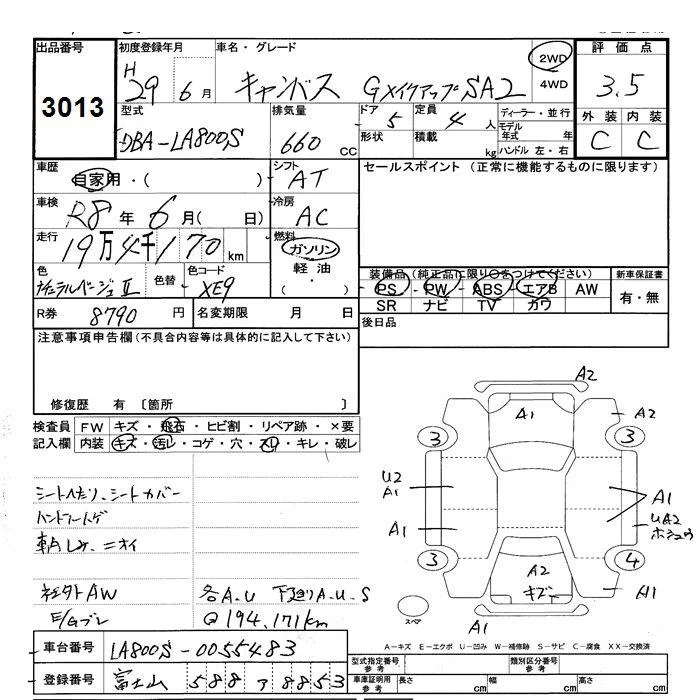 出品番号 3013
初度登録年月 H 29 年 6 月
車名・グレード キャンバス GメイクアップSA2
2WD 4WD
評価点 3.5
外装 内装
C C
型式 DBA-LA800S
排気量 660 CC
ドア 5 定員 4 人
形状 積載 kg
ディーラー・並行
モデル年式 年
ハンドル 左・右
車歴 自家用・( )
シフト AT
セールスポイント (正常に機能するものに限ります)
車検 R8 年 6 月( 日)
冷房 AC
走行 19万4千170 km
燃料 ガソリン 軽油・( )
色 ナチュラルベージュII 色替 色コード XE9
装備品(純正品に限り○をつけてください)
PS・PW・ABS・エアB AW
SR ナビ TV カワ
新車保証書 有・無
R券 8790 円 名変期限 月 日
後日品
注意事項申告欄(不具合内容等は具体的に記入して下さい)
修復歴 有 〔箇所 〕
検査員記入欄
FW キズ・飛石・ヒビ割・リペア跡・×要
内装 キズ・汚レ・コゲ・穴・スレ・キレ・破レ
シートヘたり、シートカバー
ハンドルコゲ
車内しみ、ニオイ
社外AW 各A.U 下廻りA.U.S
E/Gブレ Q 194,171km
A2
A1 A2
3 3
U2 A1
A1
A1
UA2
ホシュウ
3 4
A2
キズ
A1
スペア
A1
A-キズ E-エクボ U-凹み W-補修跡 S-サビ C-腐食 XX-交換済
車台番号 LA800S-0055483
登録番号 富士山 588 ア 8853
型式指定番号 参考 類別区分番号 参考
車庫証明用 参考 長さ cm 幅 cm 高さ cm